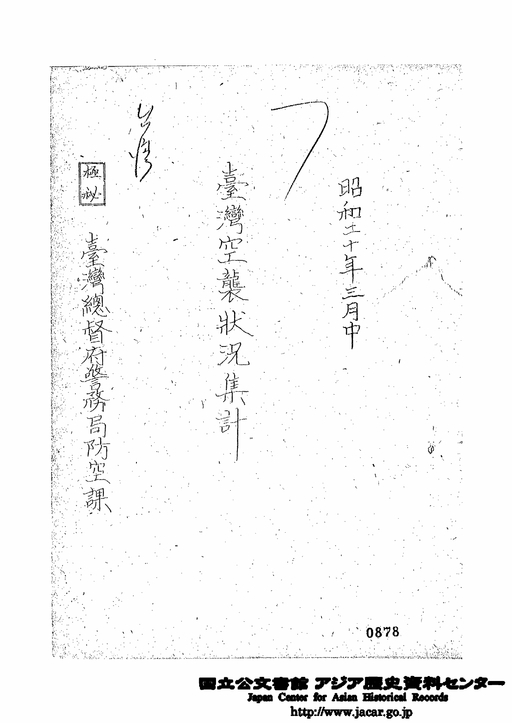 昭和二十年三月中
臺灣空襲狀況集計
台湾
極秘
臺灣總督府警務局防空課
0878
国立公文書館 アジア歴史資料センター
Japan Center for Asian Historical Records
http://www.jacar.go.jp